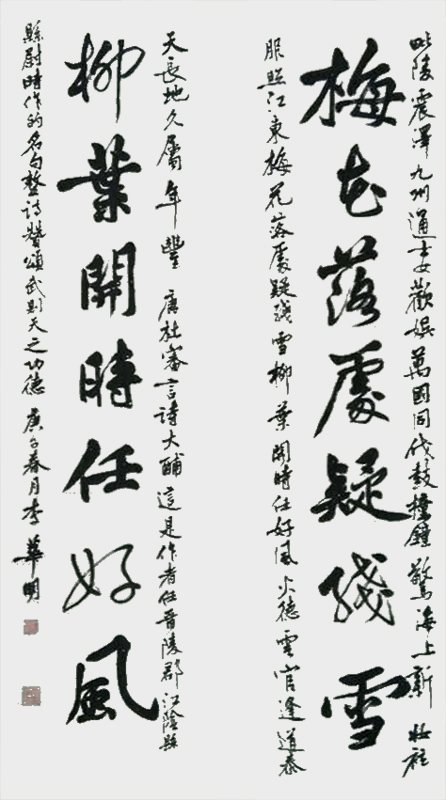 毗陵震澤九州通士女歡娛萬國同伐鼓撞鐘驚海上新妝袨
梅花落處疑殘雪
服照江東梅花落處疑殘雪柳葉開時任好風火德雲官逢道泰
天長地久屬年豐 唐杜審言詩大酺 這是作者任晉陵郡江陰縣
柳葉開時任好風
縣尉時作的名句整詩贊頌武則天之功德 庚子春月李華明